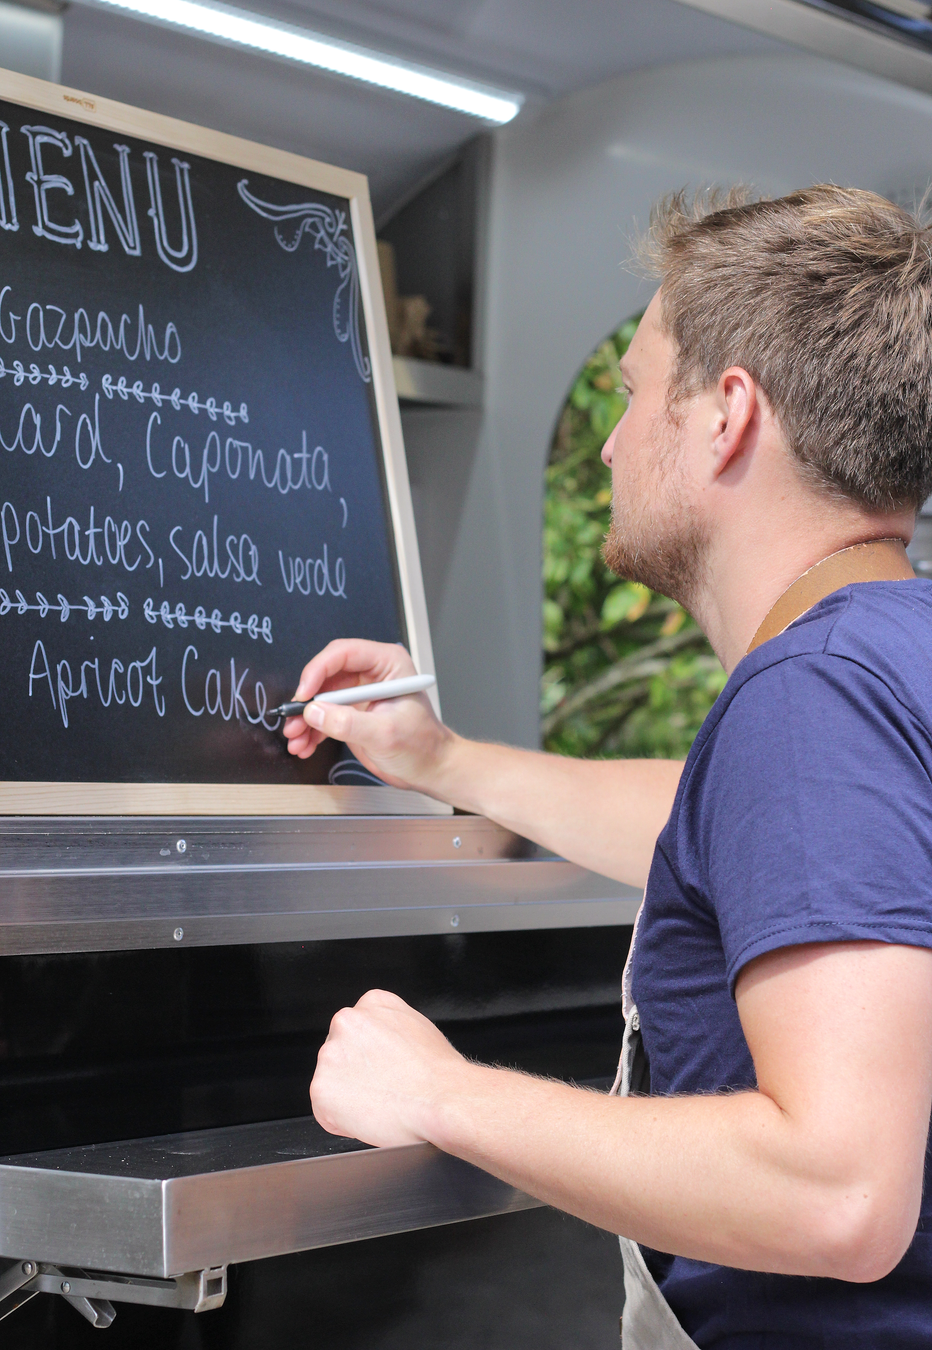 MENU
Gazpacho
Caponata,
potatoes, salsa verde
Apricot Cake